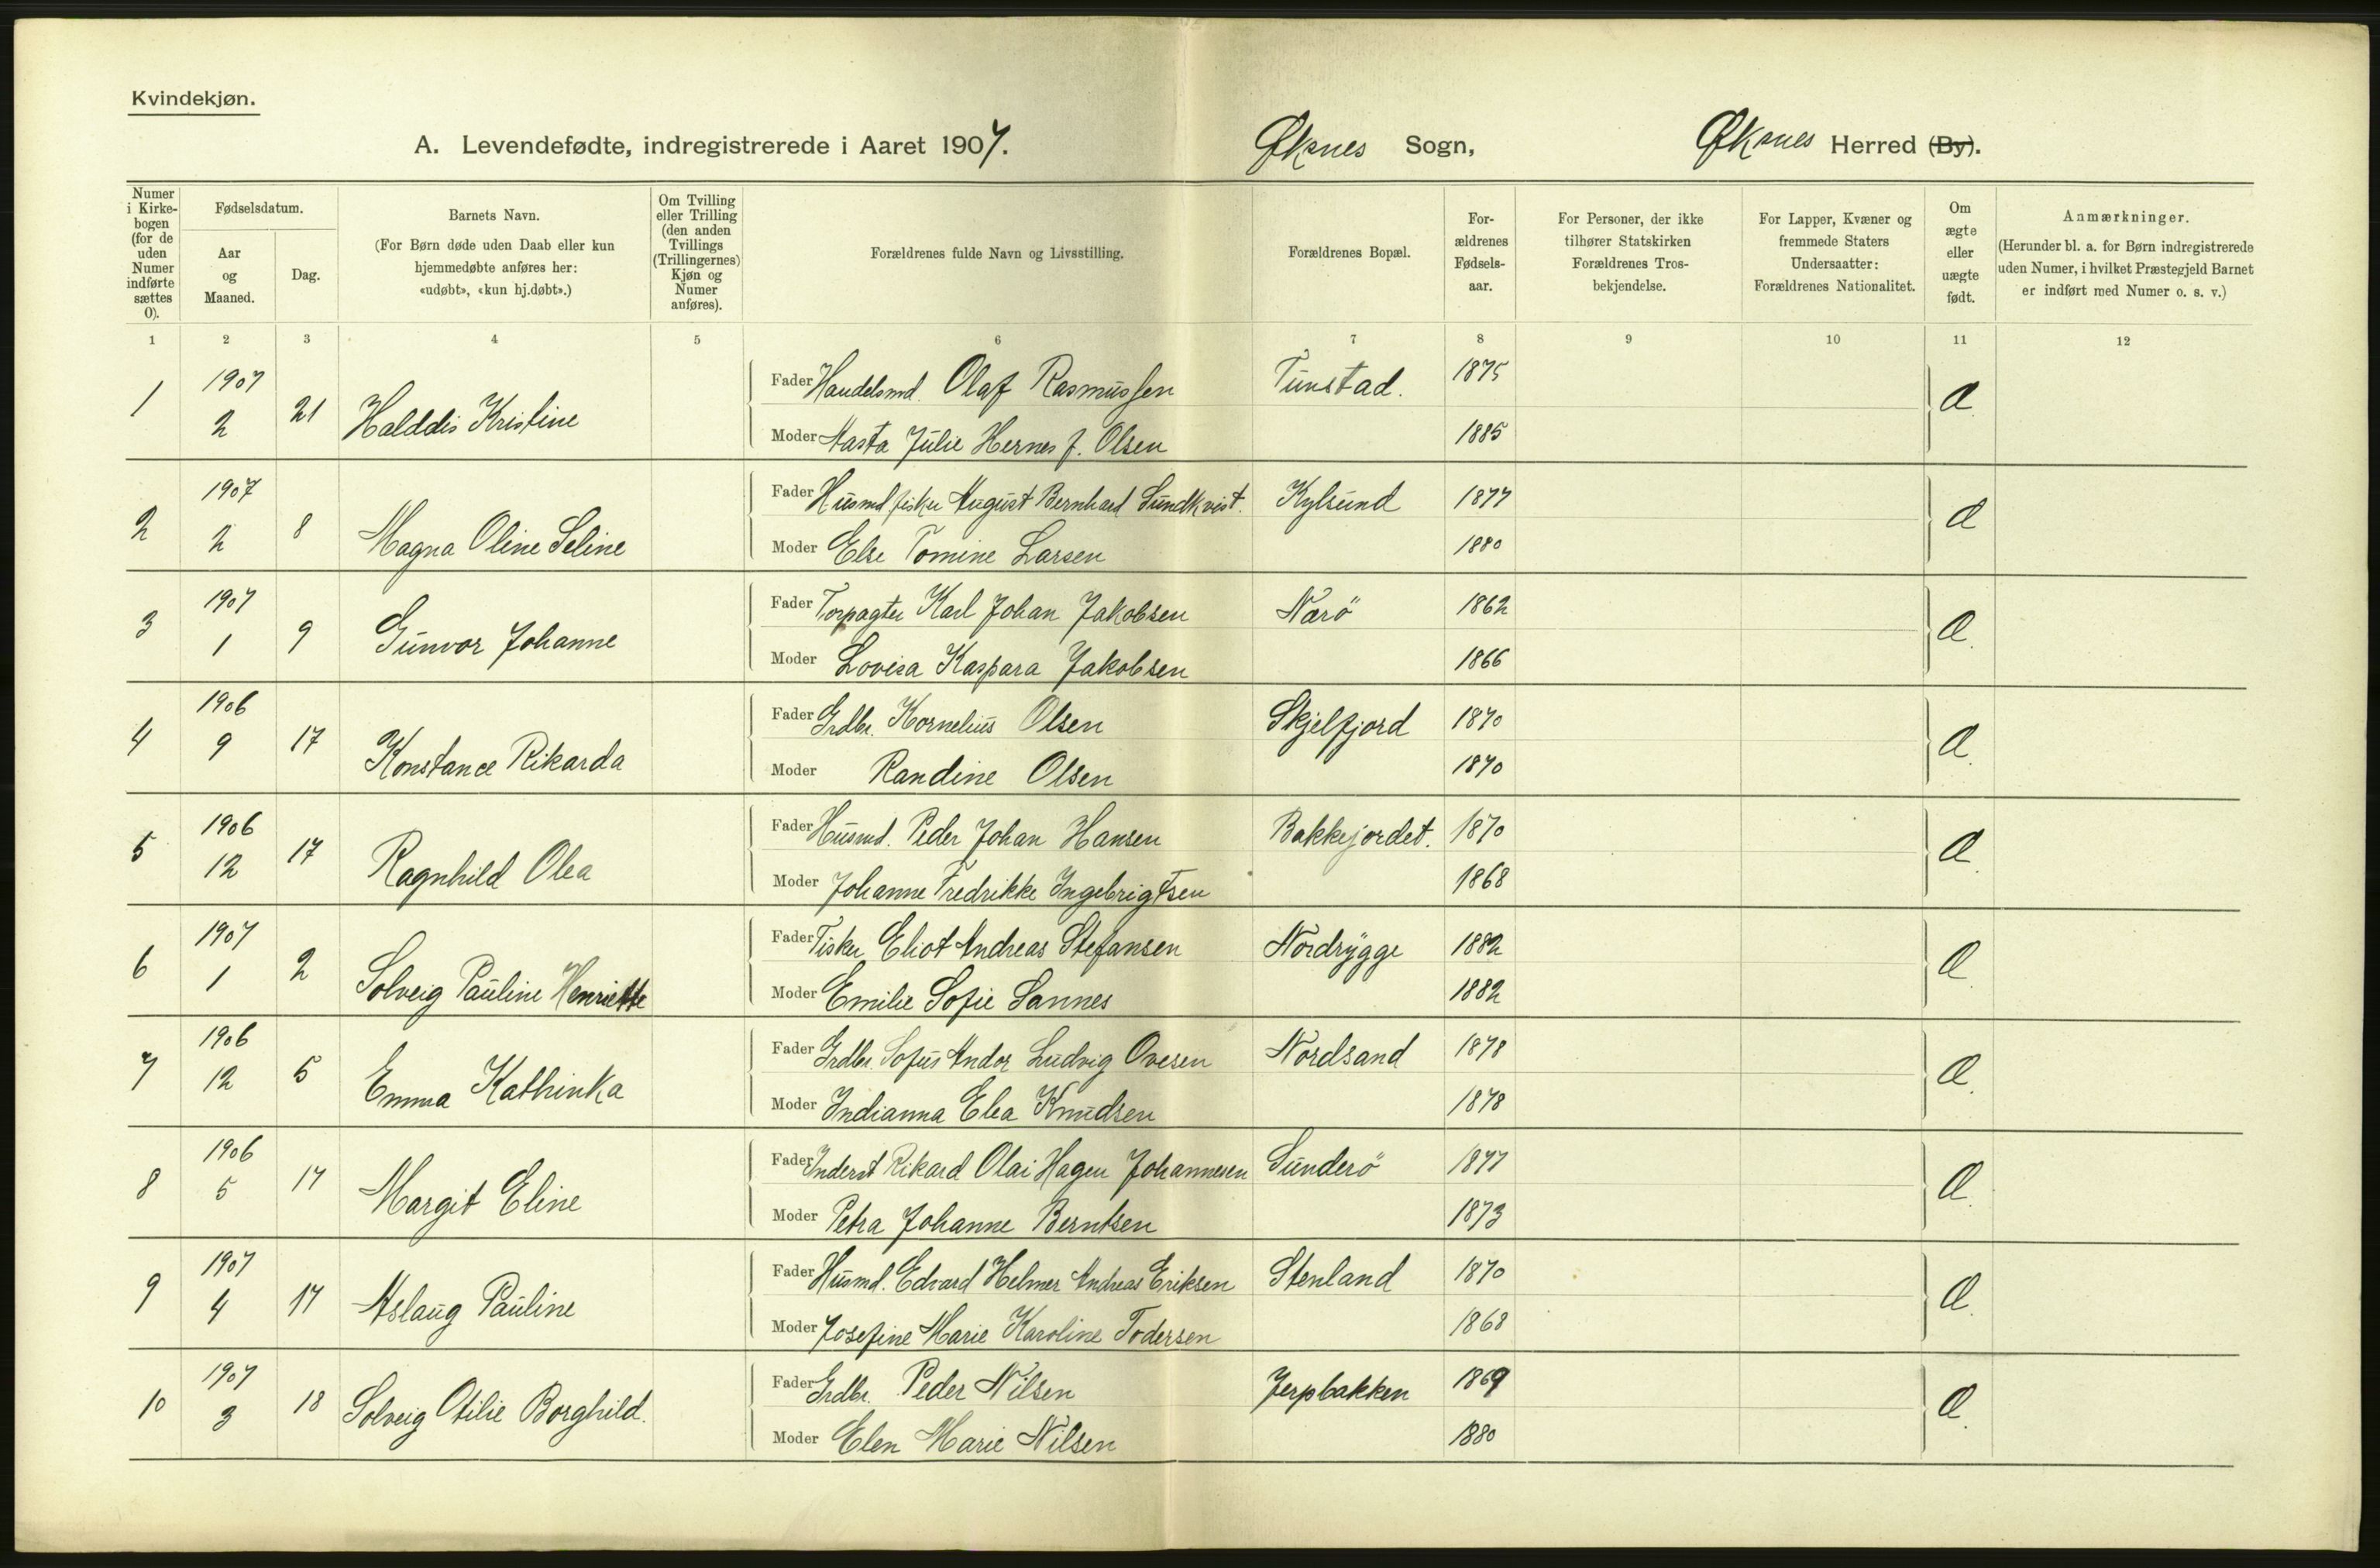 Kvindekjøn.
A. Levendefødte, indregistrerede i Aaret 1907. Øksnes Sogn, Øksnes Herred (By).
Numer i Kirkebogen (for de uden Numer indførte sættes 0).
Fødselsdatum.
Aar og Maaned.
Dag.
Barnets Navn.
(For Børn døde uden Daab eller kun hjemmedøbte anføres her: «udøbt», «kun hj.døbt».)
Om Tvilling eller Trilling (den anden Tvillings (Trillingernes) Kjøn og Numer anføres).
Forældrenes fulde Navn og Livsstilling.
Forældrenes Bopæl.
Forældrenes Fødselsaar.
For Personer, der ikke tilhører Statskirken Forældrenes Trosbekjendelse.
For Lapper, Kvæner og fremmede Staters Undersaatter: Forældrenes Nationalitet.
Om ægte eller uægte født.
Anmærkninger.
(Herunder bl. a. for Børn indregistrerede uden Numer, i hvilket Præstegjeld Barnet er indført med Numer o. s. v.)
1 2 3 4 5 6 7 8 9 10 11 12
1 1907 2 21 Halddis Kristine Fader Handelsmd. Olaf Rasmussen Tunstad. 1875 Æ
Moder Aasta Julie Hernes f. Olsen 1885
2 1907 2 8 Magna Oline Seline Fader Husmd. fisker August Bernhard Sundkvist. Kylsund 1877 Æ
Moder Else Tomine Larsen 1880
3 1907 1 9 Gunvor Johanne Fader Torpagter Karl Johan Jakobsen Nærö 1862 Æ.
Moder Lovisa Kaspara Jakobsen 1866
4 1906 9 17 Konstance Rikarda Fader Grdbr. Kornelius Olsen Skjelfjord 1870 Æ.
Moder Randine Olsen 1870
5 1906 12 17 Ragnhild Olea Fader Husmd. Peder Johan Hansen Bakkejordet. 1870 Æ.
Moder Johanne Fredrikke Ingebrigtsen 1868
6 1907 1 2 Solveig Pauline Henriette Fader Fisker Eliot Andreas Stefansen Nordrygge 1882 Æ.
Moder Emilie Sofie Sannes 1882
7 1906 12 5 Emma Kathinka Fader Grdbr. Sofus Andor Ludvig Ovesen Nordsand 1878 Æ.
Moder Indianna Elea Knudsen 1878
8 1906 5 17 Margit Eline Fader Inderst Rikard Olai Hagen Johannesen Sunderö 1877 Æ.
Moder Petra Johanne Berntsen 1873
9 1907 4 17 Aslaug Pauline Fader Husmd. Edvard Helmer Andreas Eriksen Stenland 1870 Æ.
Moder Josefine Marie Karoline Todersen 1868
10 1907 3 18 Solveig Otilie Borghild. Fader Grdbr. Peder Nilsen Jerpbakken 1869 Æ.
Moder Elen Marie Nilsen 1880